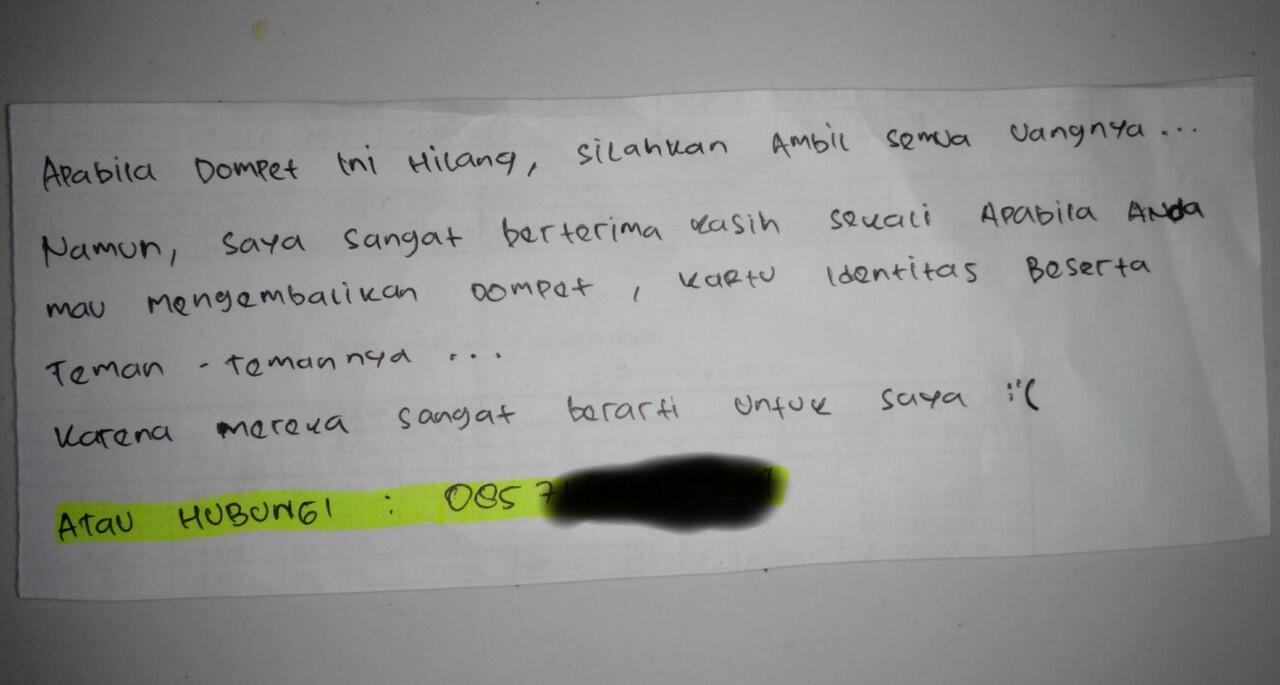 Apabila Dompet Ini Hilang, silahkan Ambil semua uangnya...
Namun, saya sangat berterima kasih sekali Apabila Anda
mau mengembalikan Dompet, kartu Identitas Beserta
Teman - temannya ...
Karena mereka sangat berarti untuk saya :"(
Atau HUBUNGI : 0857